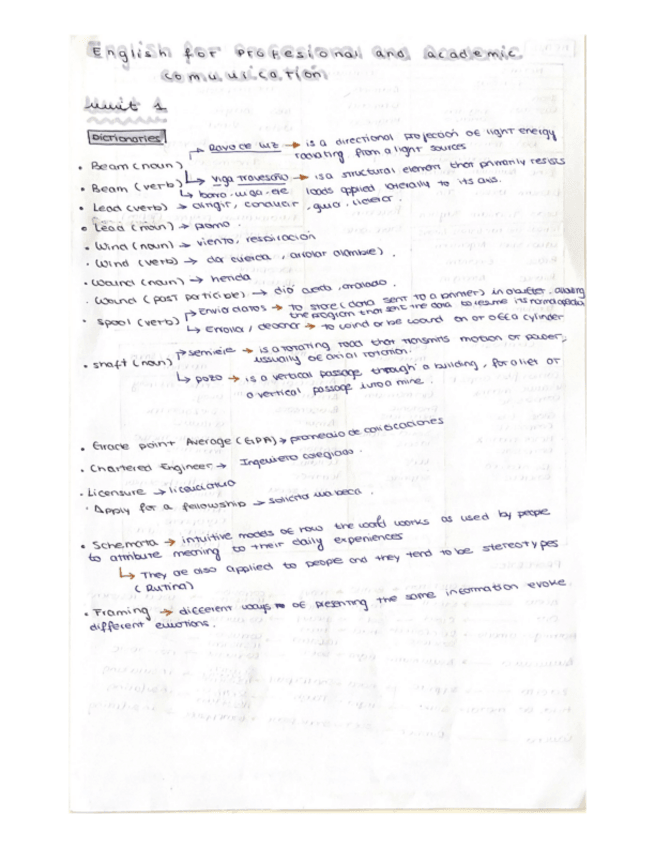 English for Profesional and academic
comunication
Unit 1
Dictionaries
Rayo de luz → is a directional projection of light energy
radiating from a light sources
• Beam (noun)
• Beam (verb) Viga travesaño → is a structural element that primarily resists
barra, viga, eje loads applied laterally to its axis.
• Lead (verb) → dirigir, conducir, guiar, llevar.
• Lead (noun) → plomo.
• Wind (noun) → viento, respiración
• Wind (verb) → dar cuerda, arrollar alambre).
• Wound (noun) → herida
• Wound (past participle) → dió cuerda, arrollado.
• Spool (verb) Envia datos → to store (data sent to a printer) in a buffer, allowing
the program that sent the data to resume its normal operation
Enrolla / devanar → to wind or be wound on or off a cylinder
• Shaft (noun) semieje → is a rotating road that transmits motion or power,
usually of axial rotation.
pozo → is a vertical passage through a building, for a lift or
a vertical passage into a mine.
• Grade point Average (GPA) → promedio de calificaciones
• Chartered Engineer → Ingeniero colegiado.
• Licensure → licenciatura
• Apply for a fellowship → solicita una beca.
• Schemata → intuitive models of how the world works as used by people
to attribute meaning to their daily experiences
They are also applied to people and they tend to be stereotypes
(Rutina)
• Framing → different ways of presenting the same information evoke
different emotions.